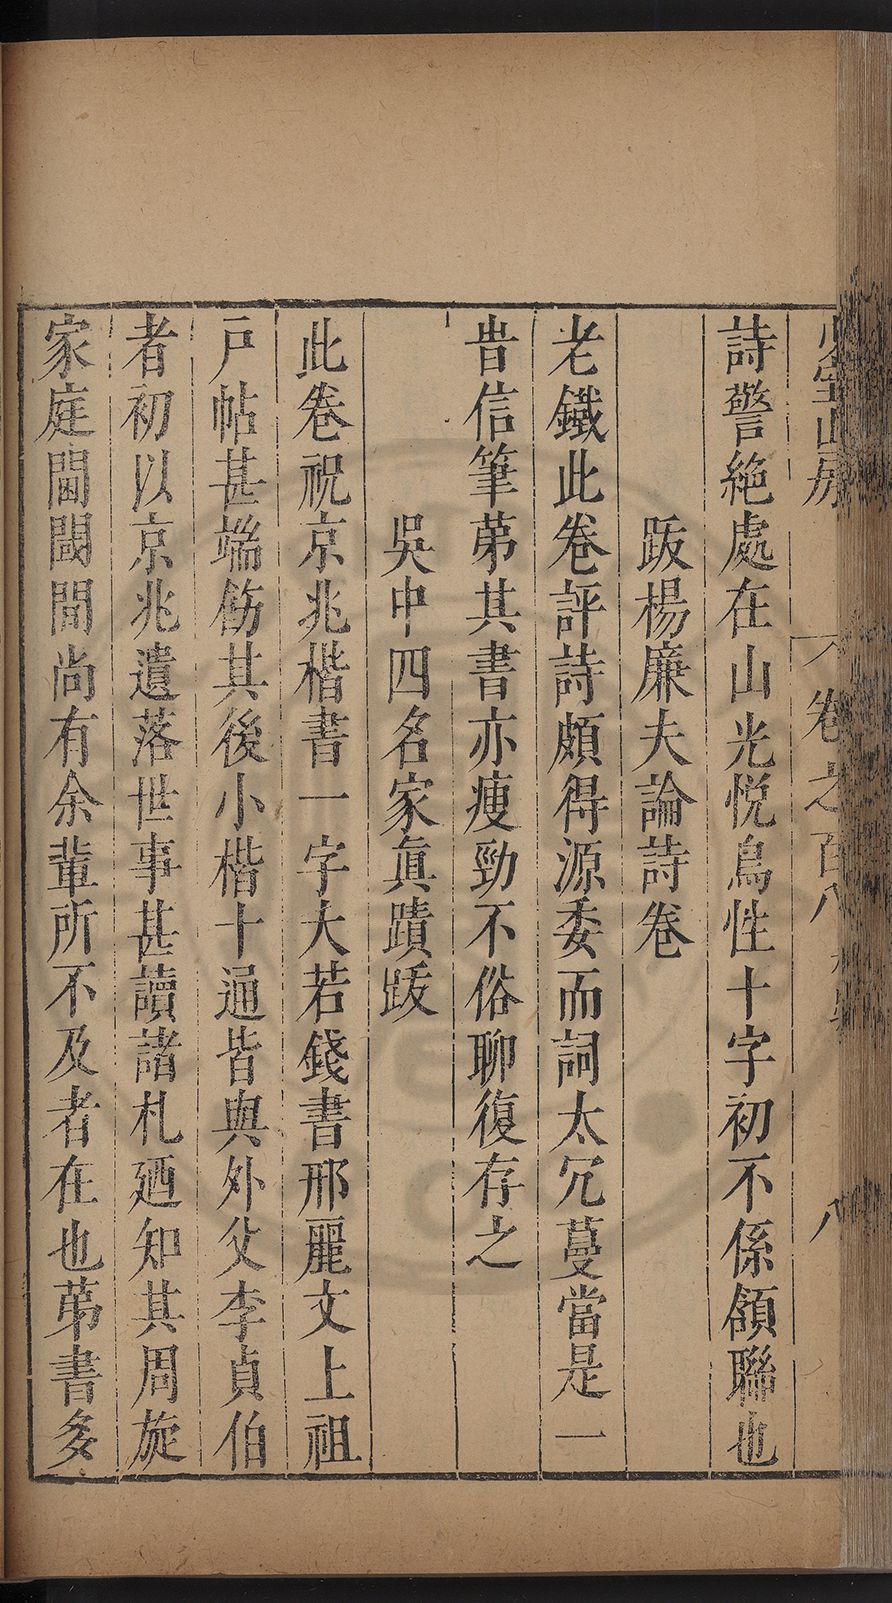 少室山房　卷之百八　八
詩警絶處在山光悅鳥性十字初不係頷聯也
跋楊廉夫論詩卷
老鐵此卷評詩頗得源委而詞太冗蔓當是一
旹信筆苐其書亦瘦勁不俗聊復存之
吳中四名家眞蹟跋
此卷祝京兆楷書一字大若錢書邢麗文上祖
戸帖甚端飭其後小楷十通皆與外父李貞伯
者初以京兆遺落世事甚讀諸札廼知其周旋
家庭閫閾間尚有余輩所不及者在也苐書多